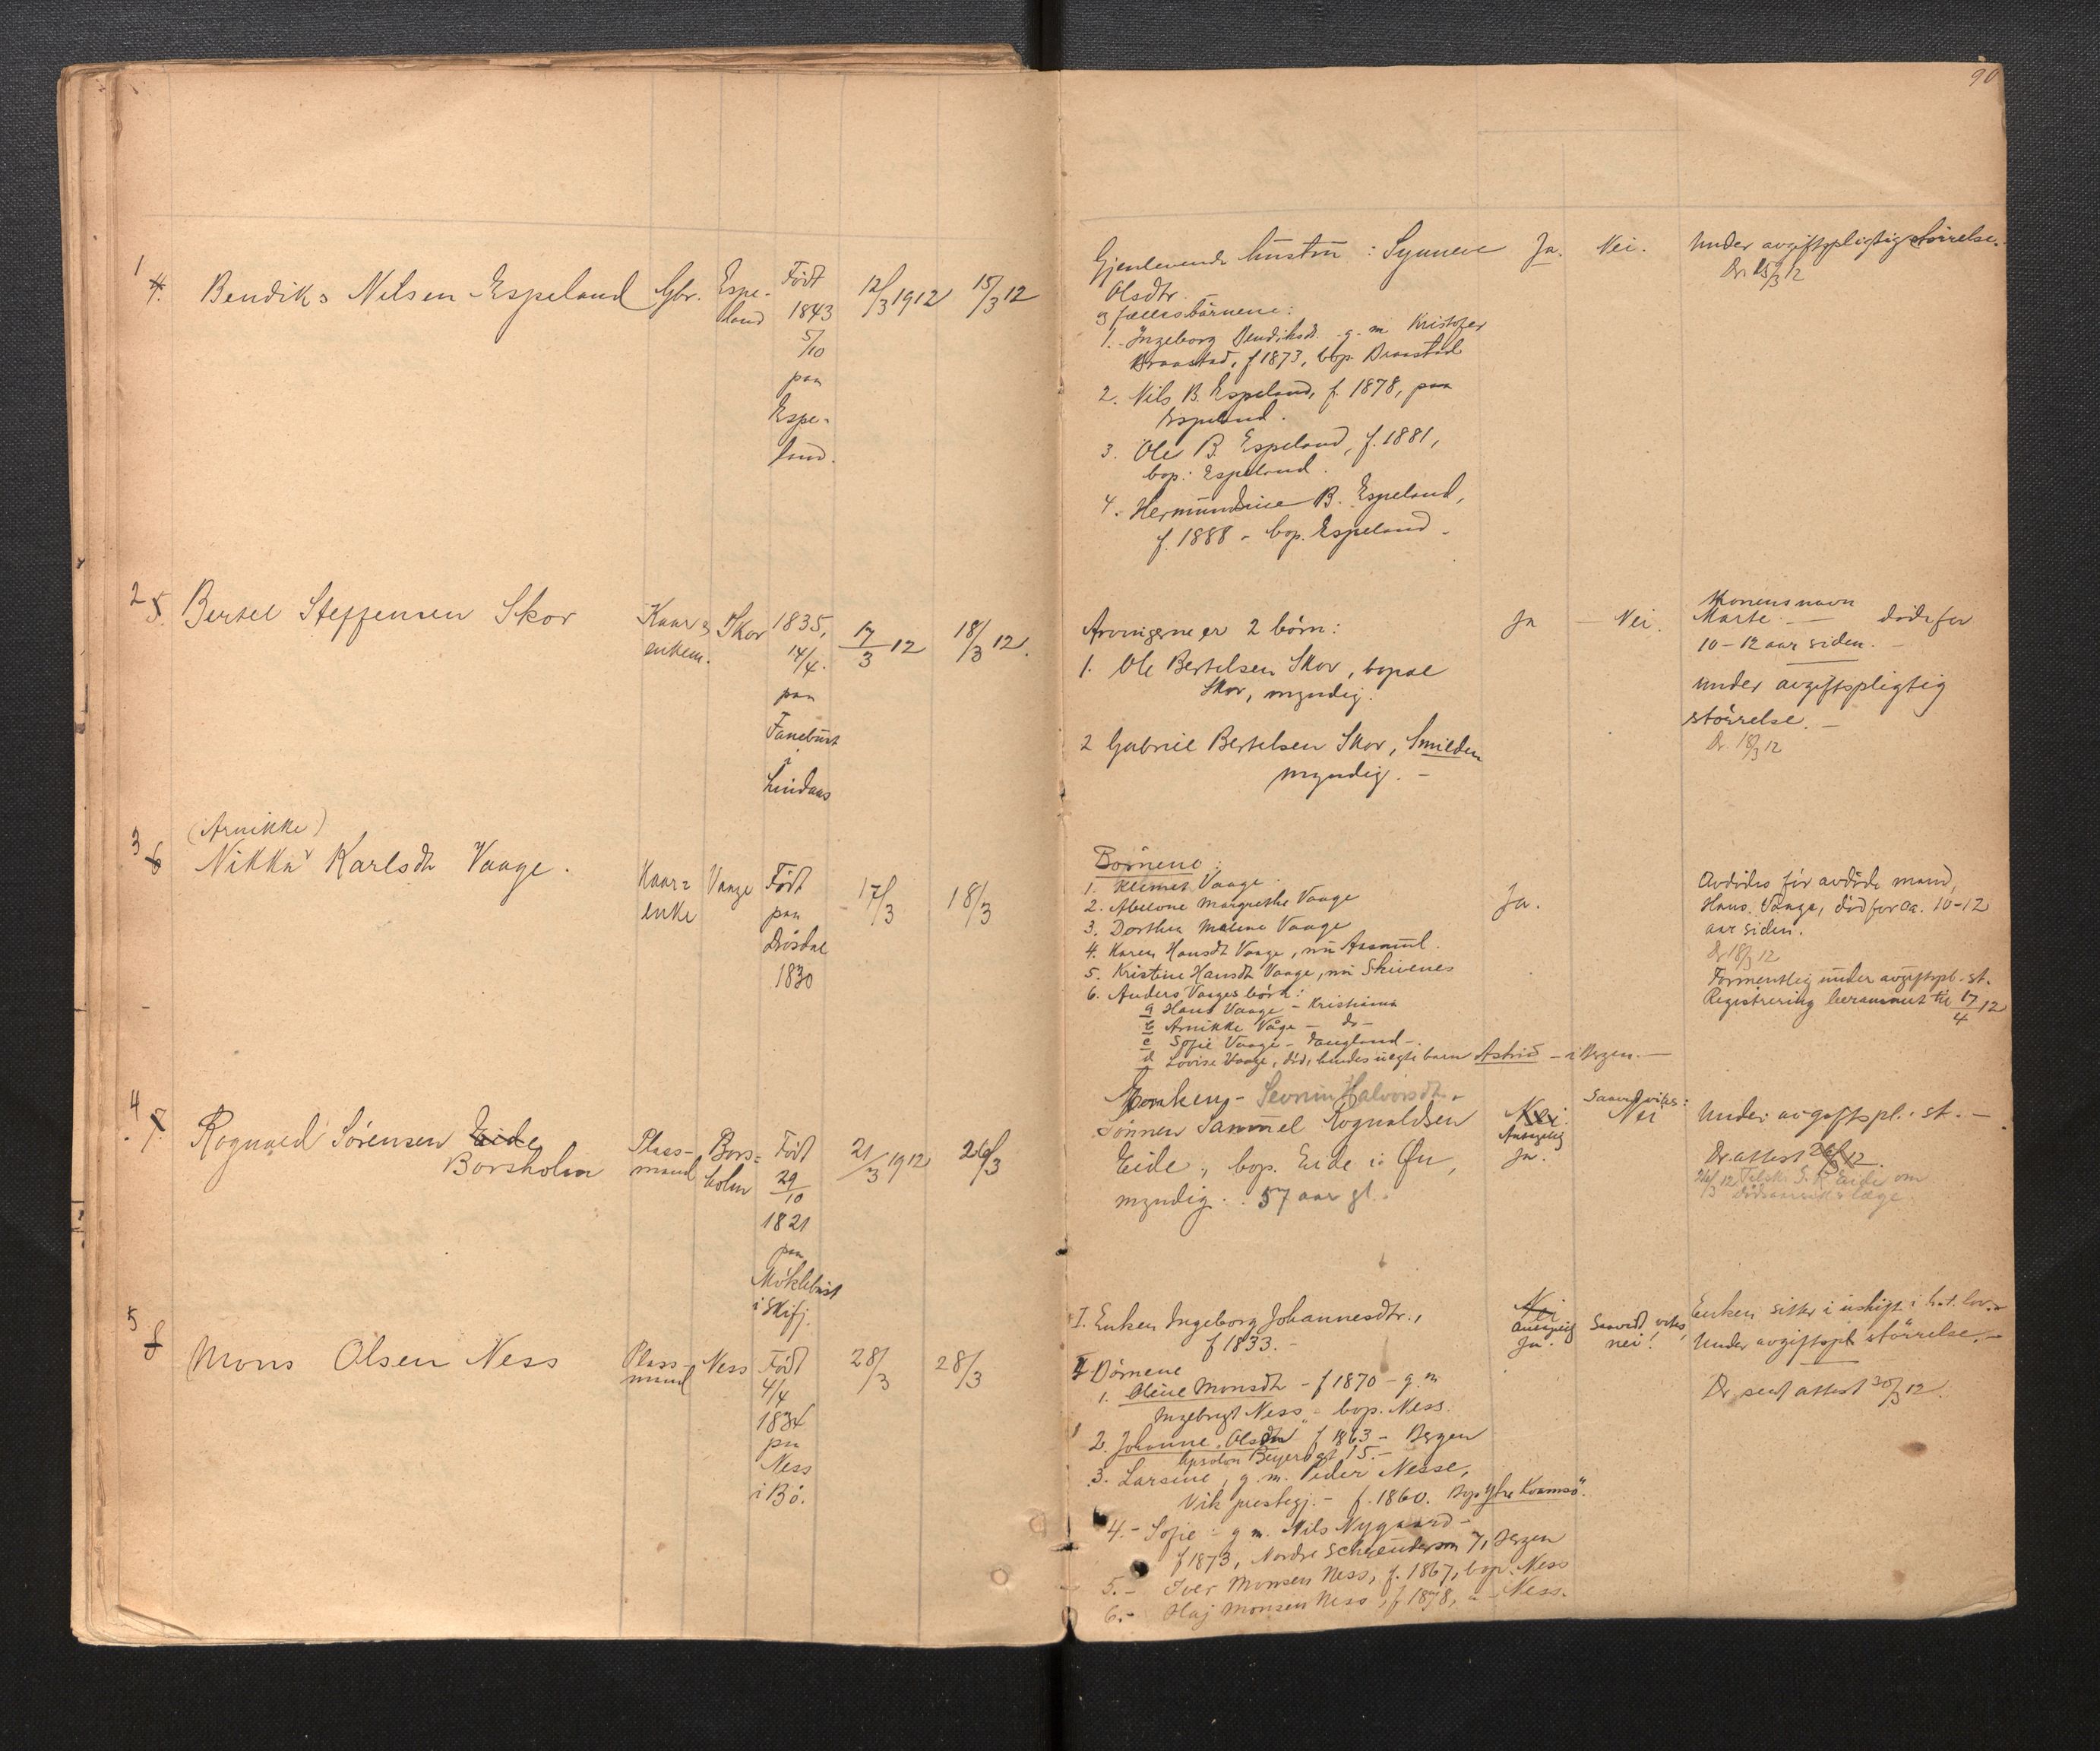 90
1
4. Bendiks Nilsen Espeland Gbr. Espe- Født 12/3 1912 15/3 12
land 1843
5/10
paa
Espe-
land.
Gjenlevende hustru : Synneve Ja. Nei. Under avgiftspligtig størrelse.
Olsdtr. Dr. 15/3 12
og fællesbørnene:
1. Ingeborg Bendiksdt. g. m. Kristofer
Braastad, f 1873, bop. Braastad
2. Nils B. Espeland, f. 1878, paa
Espeland.
3. Ole B. Espeland, f. 1881,
bop: Espeland.
4. Hermundine B. Espeland,
f. 1888 - bop. Espeland -
2 5. Bertel Steffensen Skor Kaar= Skor 1835, 17/3 12 18/3 12.
enkem. 14/4.
paa
Fanebust
i
Lindaas
Arvingerne er 2 børn: Ja — Nei.
1. Ole Bertelsen Skor, bopæl
Skor, myndig.
2 Gabriel Bertelsen Skor, Smilden
myndig. -
Konens navn
Marte — døde for
10-12 aar siden. -
Under avgiftspligtig
størrelse. -
Dr. 18/3 12
(Arnikke)
3 6 Nikka Karlsdt Vaage. Kaar= Vaage Født 17/3 18/3
enke paa
Døsdal
1830
Børnene:
1. Klemet Vaage.
2. Abelone Margrethe Vaage
3. Dorthea Malene Vaage Ja.
4. Karen Hansdt Vaage, nu
5. Kristine Hansdt Vaage, nu Skivenes
6. Anders Vaages børn:
a Hans Vaage - Kristiania
b Arnikke Våge - do -
c Sofie Vaage - Daugland -.
d Lovise Vaage, død, hendes uegte barn Astrid - i Bergen. -
Avdødes før avdøde mand,
Hans Vaage, død for ca. 10-12
aar siden.
Dr 18/3 12
Formentlig under avgiftspl. st.
Registrering berammet til 17/4 12
4 7. Rognald Sørensen Eide Plass- Bors= Født 21/3 1912 26/3
Borsholm mand holm 29/10
1821
paa
Møklebust
i Skifj.
Enken - Sevrin Halvorsdt.
Sønnen Samuel Rognaldsen Nei. Saavidt vites: Nei Under avgiftspl. st. -
Eide, bop. Eide i Øn, Antagelig Ja. Dr attest 26/3 12.
myndig. . 57 aar gl. 26/3 12 S. R. Eide om
dødsaarsak & læge
5 8 Mons Olsen Ness Plass- Ness Født 28/3 28/3
mand 4/4
1834
paa
Ness
i Bø.
I. Enken Ingeborg Johannesdtr., Nei Enken sitter i uskifte i h. t. lov. -
f 1833. - Antagelig Ja. Saavidt vites, nei! Under avgiftspl størrelse. -
II Børnene
1. Oline Monsdt - f 1870 - g. m Dr sendt attest 30/3 12.
Ingebrigt Ness, bop. Ness.
2. Johanne Olsdtr f 1863 - Bergen
Apsalon Beyersgt 15. -
3. Larsine, g. m. Peder Nesse,
Vik prestegj. - f. 1860. Bop Ytre Kvamsø.
4. - Sofie - g m. Nils Nygaard -
f 1873, Nordre 7, Bergen
5. - Iver Monsen Ness, f. 1867, bop. Ness
6. - Haj Monsen Ness, f 1878, " - Ness.